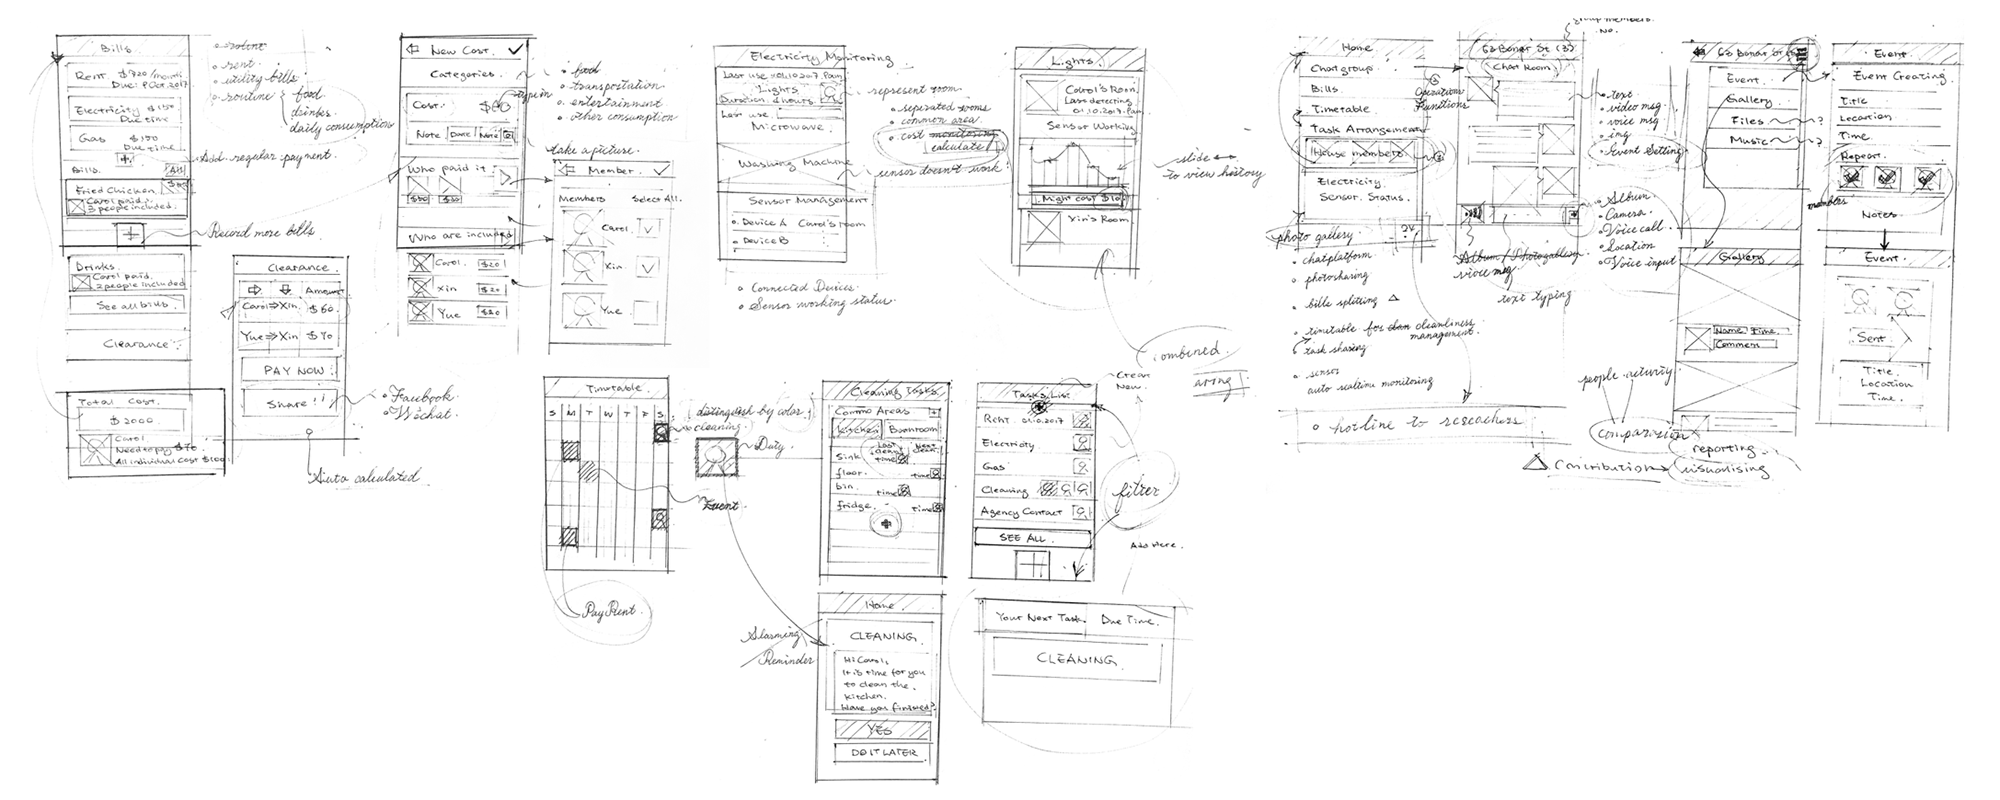 Bills
Rent. $720/month
Due: 9 Oct. 2017
Electricity $150
Due time
Gas $150
Due time.
Bills. All
Fried Chicken.
Carol paid.
3 people included.
rent
utility bills
routine { food
drinks
daily consumptions
Add regular payment.
Record more bills
Drinks.
Carol paid.
2 people included
See all bills
Clearance
Total Cost.
$2000
Carol.
Need to pay $70
All individual cost $1001
Clearance
Amount
Carol⇒Xin $60
Yue⇒Xin $70
PAY NOW
Share!!
Facebook
Wechat.
Auto calculated
New Cost.
Categories.
Cost.
typein
Note Date Note
Who paid it.
$80 $30
Who are included
Carol. $20
Xin $20
Yue $20
food
transportation
entertainment
other consumption
take a picture.
Member.
Members Select All.
Carol.
Xin
Yue
Electricity Monitoring
Lights
Last use
Microwave.
Washing Machine
Sensor Management.
Device A Carol's room
Device B
represent room.
seperated rooms
common area.
cost monitoring
calculate
sensor doesn't work.
Connected Devices.
Sensor working status.
Lights.
Carol's Room
Last detecting
01.10.2017.
Sensor Working
Might cost $10
Xin's Room
slide ↔
to view history
combined
Timetable.
S M T W T F S
distinguish by color.
no cleaning.
Duty.
Event
Pay Rent.
Cleaning Tasks.
Commo Areas +
Kitchen
Last clean time
Next clean.
Sink
floor. time
bin. time
fridge. time
Home
CLEANING.
Hi Carol,
It is time for you
to clean the
kitchen.
Have you finished?
YES
DO IT LATER
Alarming
Reminder
Create
New.
Tasks List
Rent 01.10.2017
Electricity
Gas
Cleaning
Agency Contact
SEE ALL.
filter
Add Here.
Your Next Task. Due Time.
CLEANING.
Home
Chat group
Bills.
Timetable
Task Arrangement
House members
Electricity.
Sensor. Status.
Operations
Functions
photo gallery.
chat platform
photo sharing
bills splitting △
timetable for cleanliness
management.
task sharing
sensor
auto realtime monitoring
hotline to reseachers
group members.
No.
63 Bonar St (3)
Chat Room
text
video msg
voice msg
img
Event Setting
Album.
Camera.
Voice call.
Location
Voice input
Album / Photogallery
voice msg
text typing
people activity
comparision
reporting.
visualising
△ Contribution
63 Bonar St
Event.
Gallery.
Files ?
Music ?
Gallery
Name. Time.
Comment
Event
Event Creating
Title
Location
Time.
Repeat.
Notes.
Event.
Sent
Title.
Location
Time.